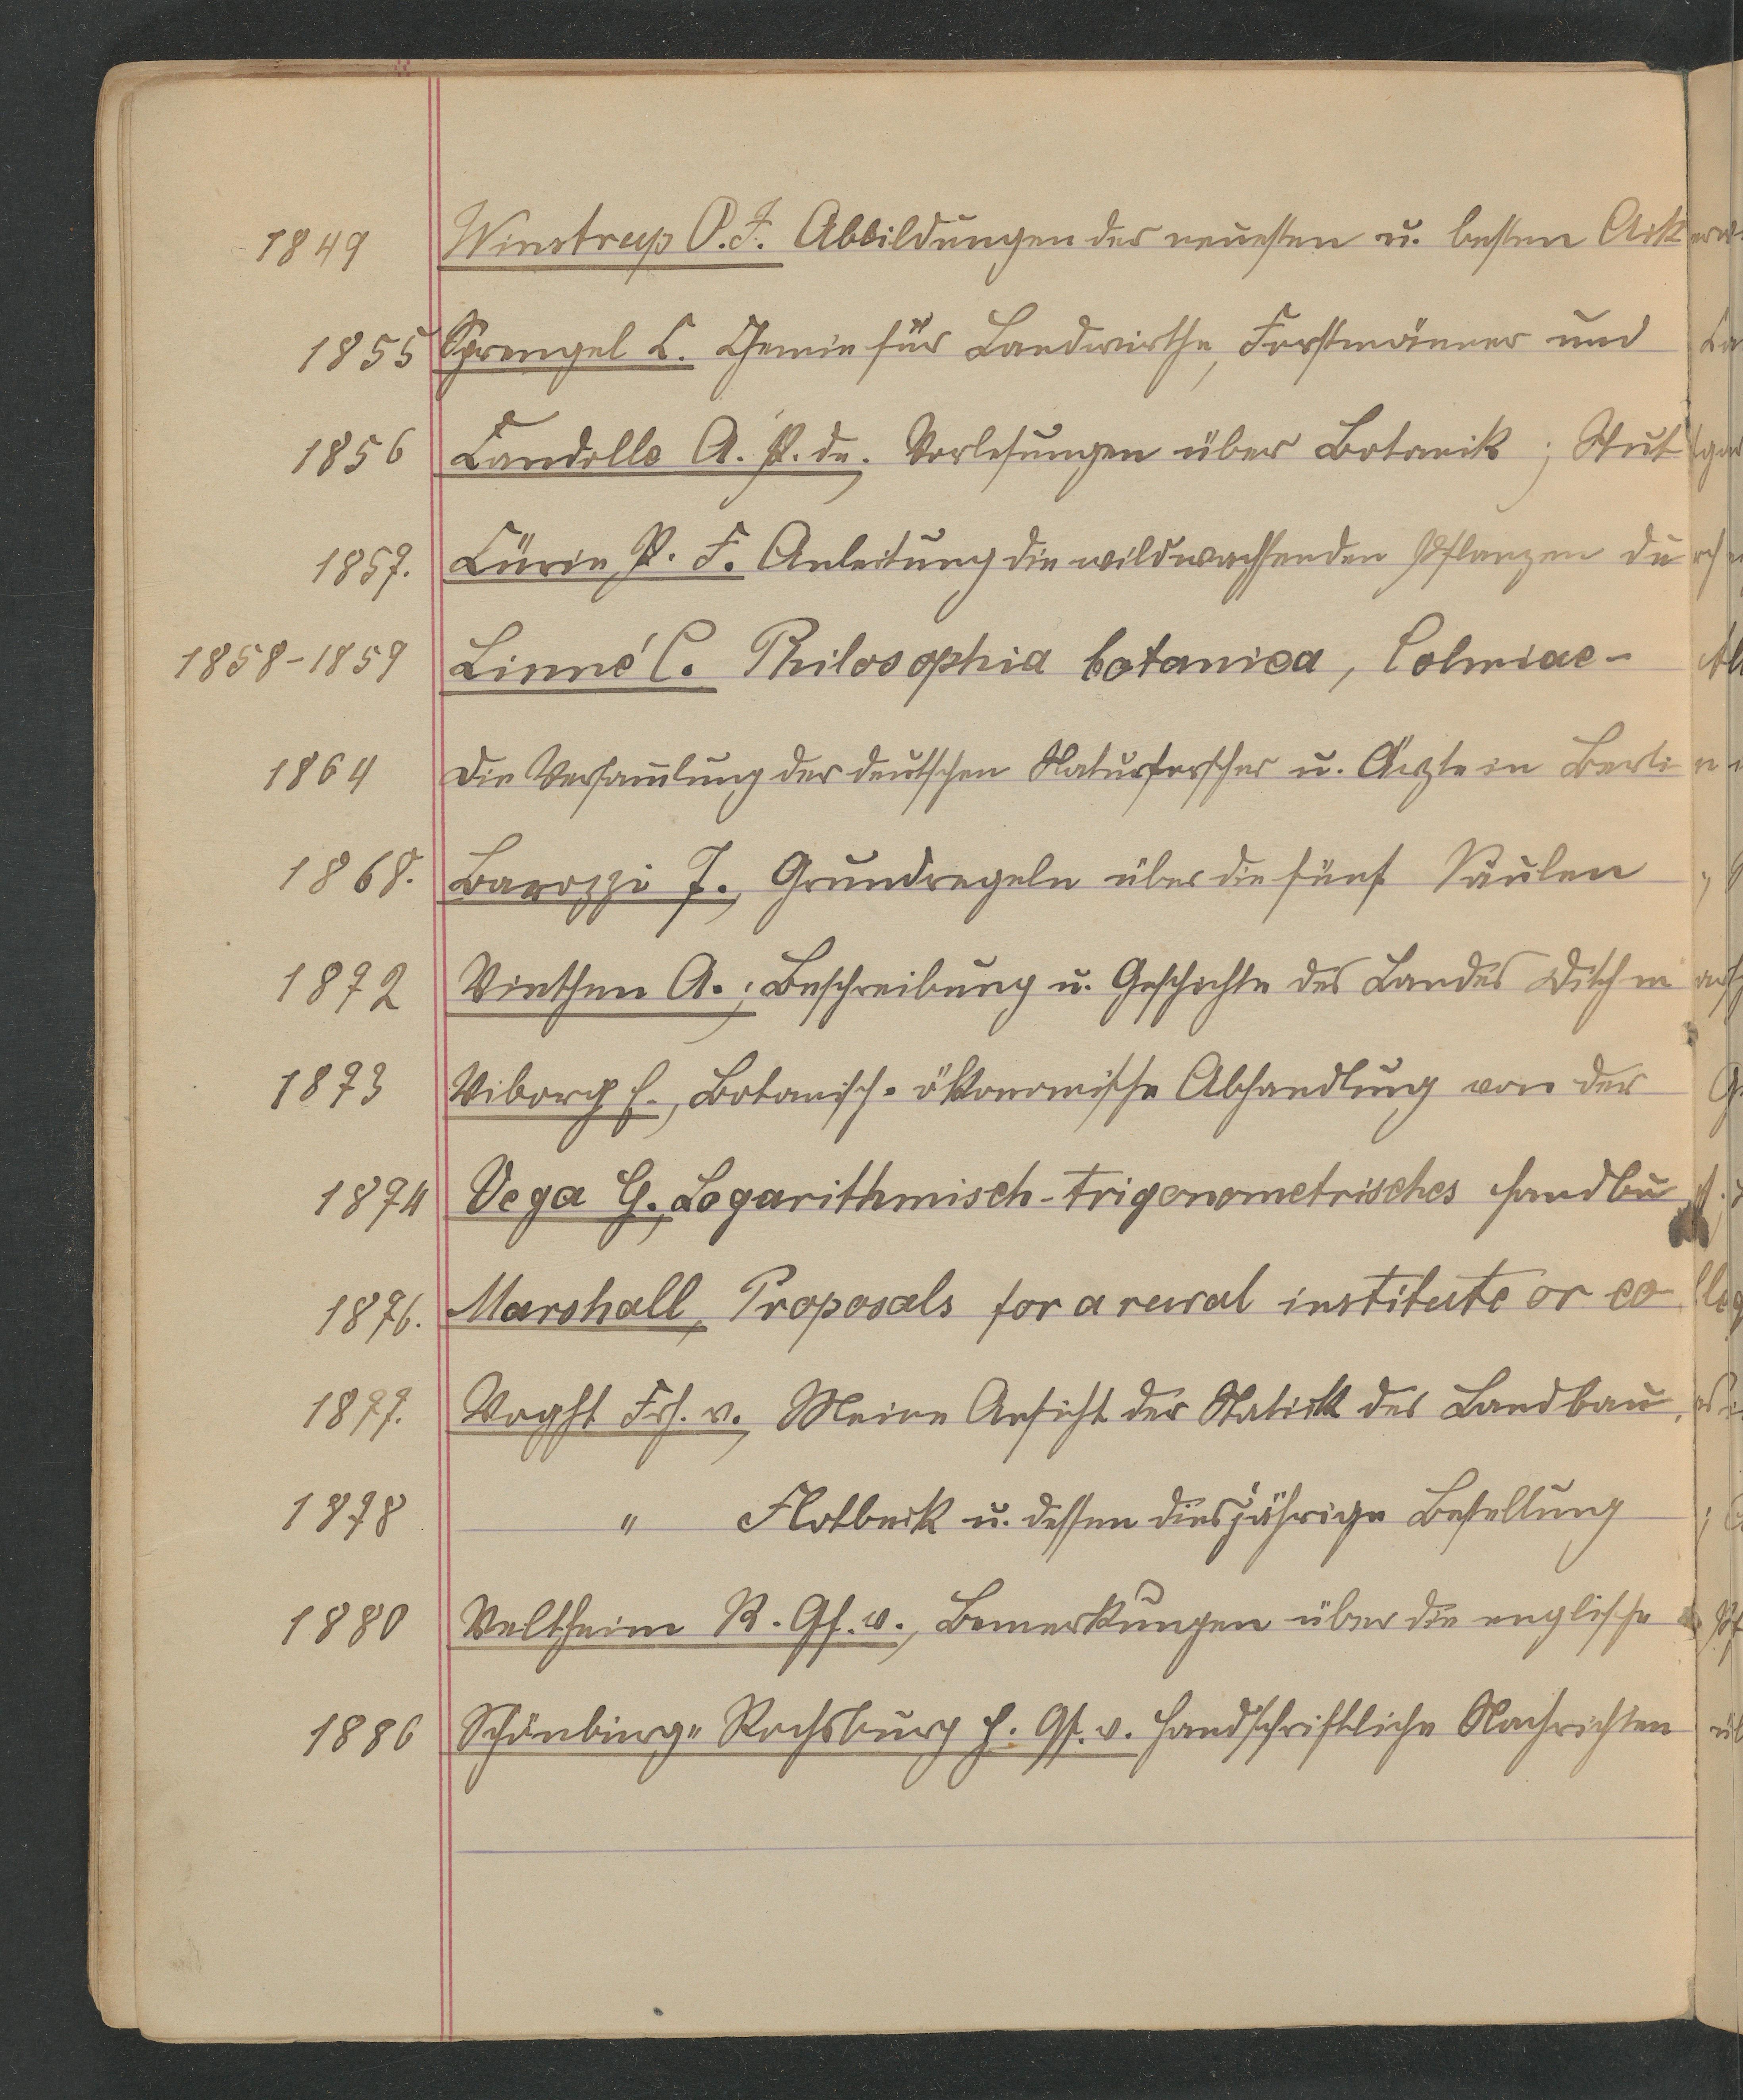 1849 Winstrup O.F. Abbildungen der neuesten u. besten Acker
1855 Sprengel C. Chemie für Landwirthe, Forstmänner und
1856 Candolle A. P. de. Vorlesungen über Botanik; Stutgar
1857. Cürie P. F. Anleitung die wildwachsenden Pflanzen durch
1858-1859 Linné C. Philosophia botanica, Colmiae-
1864 Die Versam̄lung der deutschen Naturforscher u. Ärzte in Berlin
1868. Barozzi J., Grundregeln über die fünf Säulen
1872 Viethen A.; Beschreibung u. Geschichte des Landes Dithm
1873 Viborg E., Botanisch-ökonomische Abhandlung von der
1874 Vega G., Logarithmisch-trigonometrisches Handbu
1876. Marshall, Proposals for a rural institute or colleg
1877. Voght Frh. v., Meine Ansicht der Statick des Landbau
1878 " Flotbeck u. dessen diesjährige Bestellung
1880 Veltheim R. Gf. v., Bemerkungen über die englische
1886 Schönburg-Rochsburg H. Gf. v. Handschriftliche Nachrichten